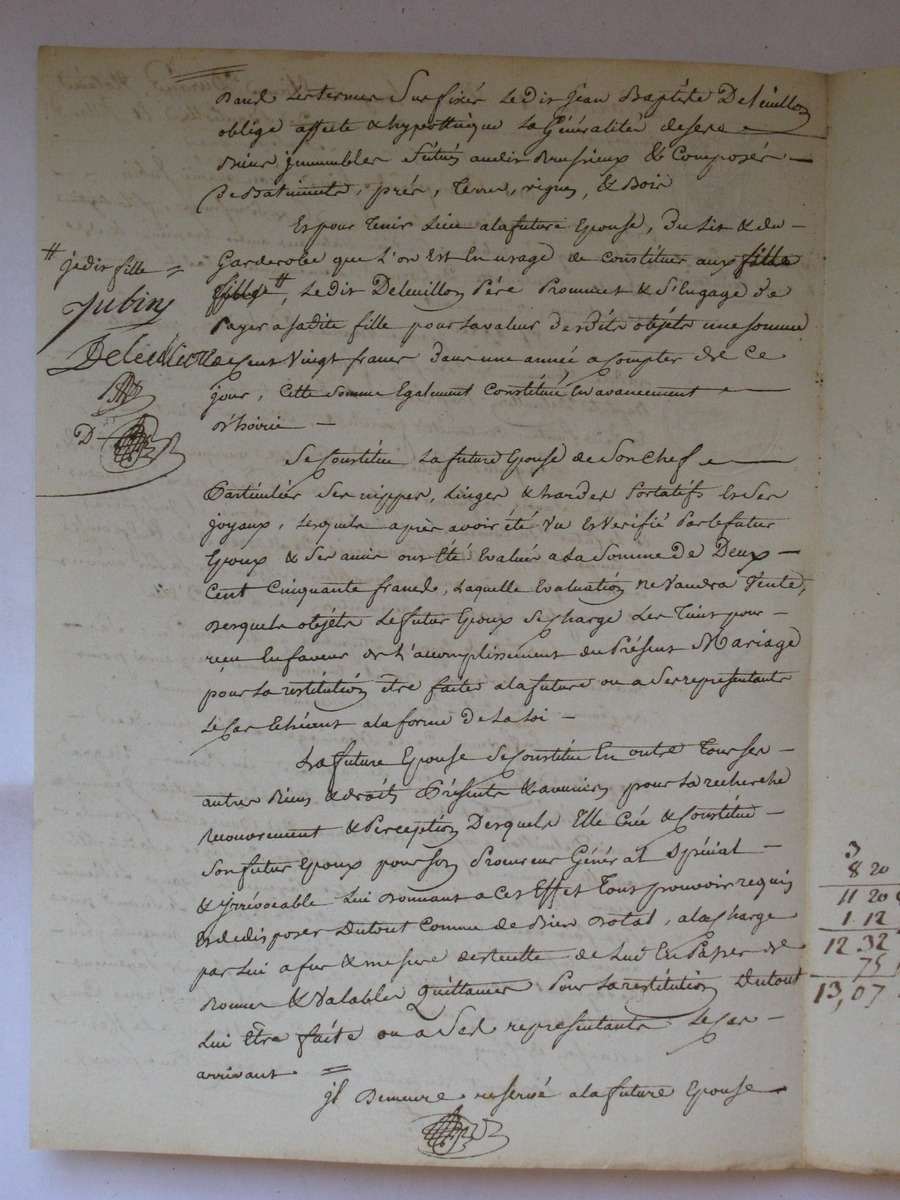 Dand les termes sus fixés le dit jean Baptiste Deleuillon
oblige affecte & hypothèque la Généralité de ses
Biens jmmeubles situés audit Brussieux & Composés
De Batiments, prés, Terres, vignes, & Bois
Et pour Tenir Lieu alafuture Epouse, du Lit & du
Garderobe que l'on Est En usage de constituer aux fille
fille #, Le dit Deleuillon Père Promet & S'Engage de
Payer a sadite fille pour la valeur desdits objéts une somme
de Cent Vingt francs dans une année a compter de Ce
jour, cette somme Egalement Constituée En avancement
d'hoirie
Se Constitue La future Epouse de Son chef
Particulier Ses nippes, Linges & hardes Portatifs Et Ses
joyaux, Lesquels après avoir été Vu Et Verifié Par le futur
Epoux & Ses amis ont Eté Evalués a La Somme de Deux
Cent Cinquante francs, Laquelle Evaluation ne Vaudra Vente,
Desquels objéts Le futur Epoux Se charge Les Tient pour
reçu En faveur de L'accomplissement du Présent Mariage
pour La restitution être faite alafuture ou a Ses representants
Le Cas Echéant ala forme De La Loi
La future Epouse Se Constitue En outre Tous ses
autres Biens & droits Présents & avenirs pour la recherche
recouvrement & Perception Desquels Elle Crée & Constitue
Son futur Epoux pour Son Procureur Général Spécial
& jrrévocable Lui Donnant a Cet Effet Tous pouvoir requis
Et de disposer Dutout Comme de Bien Dotal, ala charge
par Lui a fur & mesure de recette de Lui En Passer de
Bonnes & Valables Quittances Pour La restitution Dutout
Lui Etre faite ou a Ses representants Le Cas
arrivant =
jl Demeure reservé alafuture Epouse
# jedis fille =
Jubin
Deleuillon
D
3
8 20
11 20
1 12
12 32
75
13,07